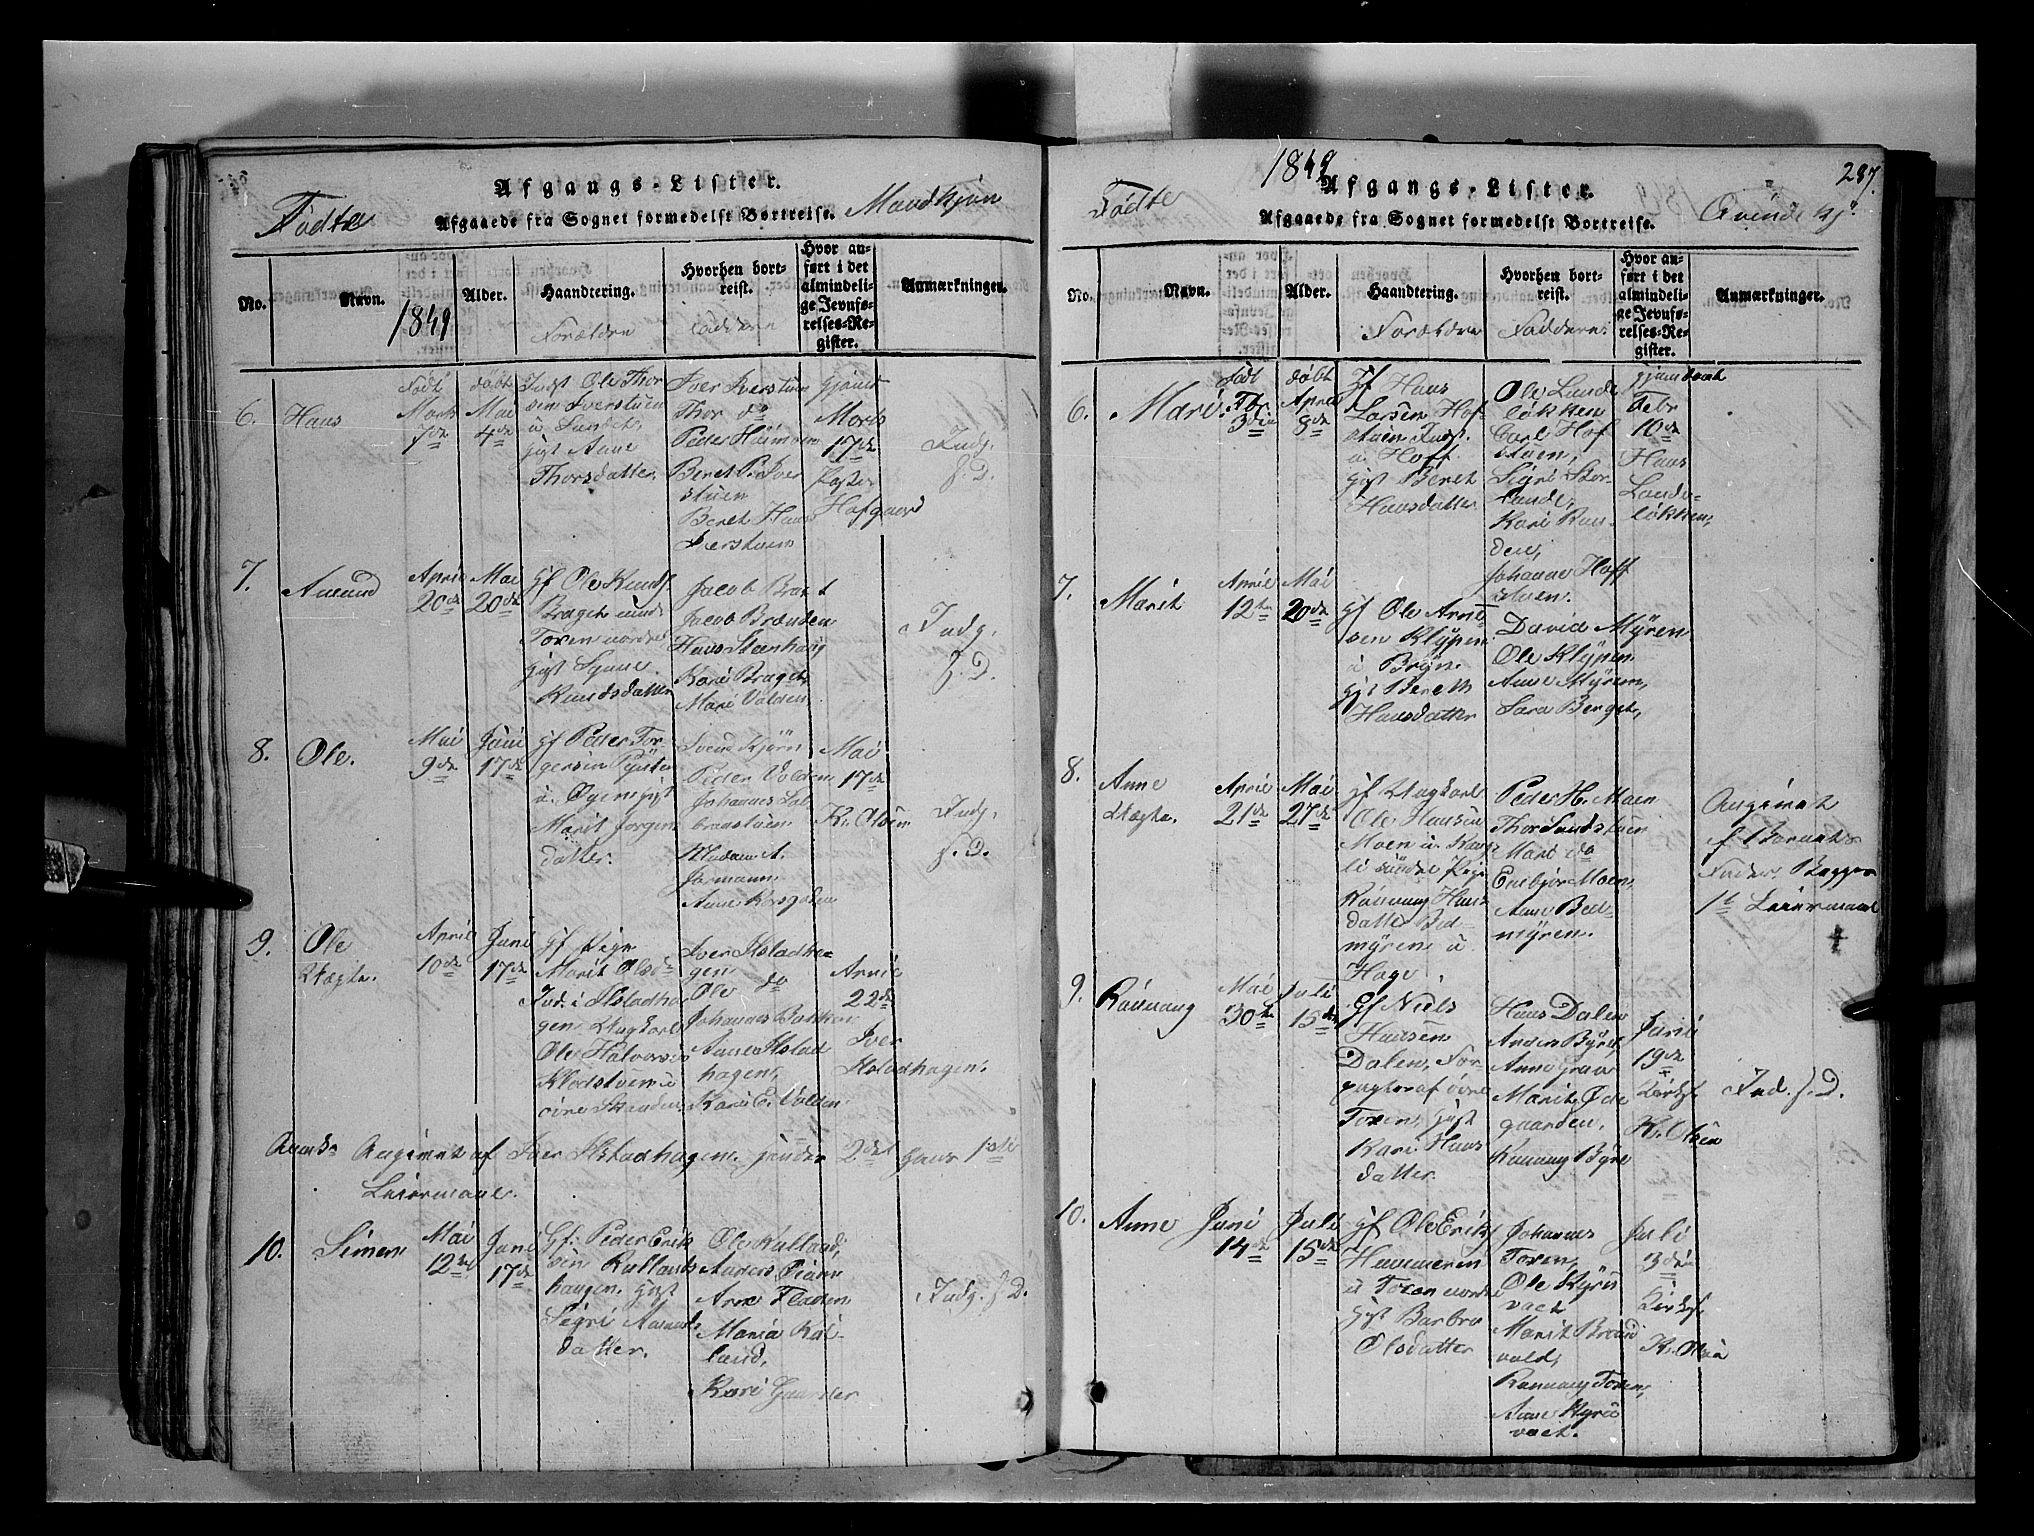 Afgangs-Lister.
Fødte
Afgaaede fra Sognet formedelst Bortreise.
Mandkjøn
No.
Navn.
1849
Alder.
Haandtering.
Forældre
Hvorhen bort-
reist.
Faddere
Hvor an-
ført i det
almindeli-
ge Jevnfø-
relses-Re-
gister.
Anmærkninger.
6.
Hans
Født
Marts
7de
døbt
Mai
4de
Indst Ole Thor
sen Iverstuen
gift Anne
Thorsdatter.
Iver Iverstuen
Thor do
Peder
Beret P. Iver
stuen
Beret Hans
Iverstuen
hjemd
Marts
17de
Hofgaard
Indg.
f. D.
7.
Amund
April
20de
Mai
20de
Gf Ole Knuds
Braget
Toxen nordre
gift
Knudsdatter
Jacob Braget
Jacob Brænden
Hans Steenhaug
Kari Braget
Mari Volden
Indg.
f. D.
8.
Ole.
Mai
9de
Juni
17de
Gf Peder Tor
gersen
Øyen gift
Marit Jorgens
datter.
Svend Kjørn
Peder Volden
Johannes
Madame A.
Jormann
Mai
17de
K. Olsen
Indg.
f. D.
9.
Ole
Uægte.
April
10de
Juni
17de
Gf Pige
Marit Olsd
Ind. i Ilstadha
gen Ungkarl
Ole Halvorsen
Klodstuen
Iver Ilstadha
gen
Ole do
Johannes Bakken
Anne Ilstad
hagen,
Kari E. Volden
April
22de
Iver
Ilstadhagen.
Anmk
Angivet af Iver Ilstadhagen, 2det hans 1ste
Leiermaal.
10.
Simen
Mai
12te
Juni
17de
Gf. Peder Erik
sen Kallands
haugen. gift
Sigri Amunds
datter.
Ole Kalland,
Anders
Arne Fladen
Maria Kal-
land,
Kari Gaarder
Indg. f. D.
1849
287.
Afgangs-Lister.
Fødte
Afgaaede fra Sognet formedelst Bortreise.
Qvindekj.
No.
Navn.
Alder.
Haandtering.
Forældre
Hvorhen bort-
reist.
Faddere
Hvor an-
ført i det
almindeli-
ge Jevnfø-
relses-Re-
gister.
Anmærkninger.
6.
Mari
Født
Fbr.
3die
døbt
April
8de
Gf Hans
Larsen Hof
stuen Indst.
u. Hoff.
gift Beret
Hansdatter
Ole Lunde
løkken
Carl Hof
stuen,
Sigri Stor
lunde,
Kari Ran
den,
Johanne Hoff
stuen.
hjemdøbt
Febr
10de
Hans
Lunde-
løkken,
7.
Marit
April
12te
Mai
20de
Gf Ole Arne
sen Klypen
u Bryn
gift Bereth
Hansdatter
David Myren
Ole Klypen
Anne Myren,
Sara Berget,
8.
Anne
Uægte.
April
21de
Mai
27de
Gf Ungkarl
Ole Hansen
Moen u. Kaas
li søndre Pige
Rønnaug Hans
datter Bed-
myren u
Hage.
Peder H. Moen
Thor Sandstuen
Mari do
Enebjør Moen,
Anne Bed-
myren.
Angivet
f Barnets
Fader, Begges
1ste Leiermaal
9.
Rønnaug
Mai
30te
Juli
15de
Gf Niels
Hansen
Dalen, For
pagter af øvre
Toxen, gift
Kari Hans
datter.
Hans Dalen
Anders Byre,
Anne Graw
Marit Øde
gaarden.
Rønnaug Byre
Juni
19de
Kirks
K. Olsen
Ind. f. D.
10.
Anne
Juni
14de
Juli
15de
Gf Ole Eriks
Hammeren
u Toxen nordre
gift Barbro
Olsdatter
Johannes
Toxen,
Ole Kyrø
vaet
Marit Brand
vold,
Rønnaug Toxen,
Anne Kyrø
vaet.
Juli
3die
Kirks.
K. Olsen